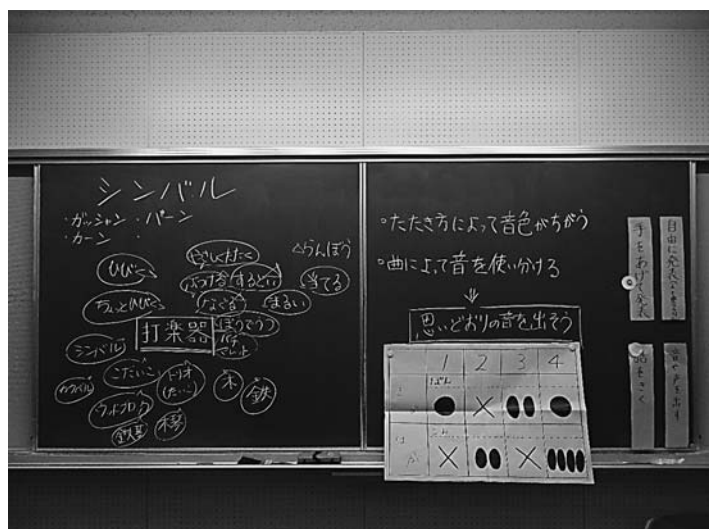 シンバル
・ガッシャン ・パーン
・カーン ・
やさしくたたく
△らんぼう
ひびく
ぶつける
するどい
当てる
ちょっとひびく
なぐる
まるい
打楽器
ぼうでうつ
バチ
マレット
シンバル
こだいこ
トリオ
(たいこ)
木
鉄
カウベル
ウッドブロック
鉄琴
木琴
・たたき方によって音色がちがう
・曲によって音を使い分ける
⇓
思いどおりの音を出そう
1 2 3 4
ぱん
×
× ×
自由に発表
手をあげて発表
音や声を出す
話をきく